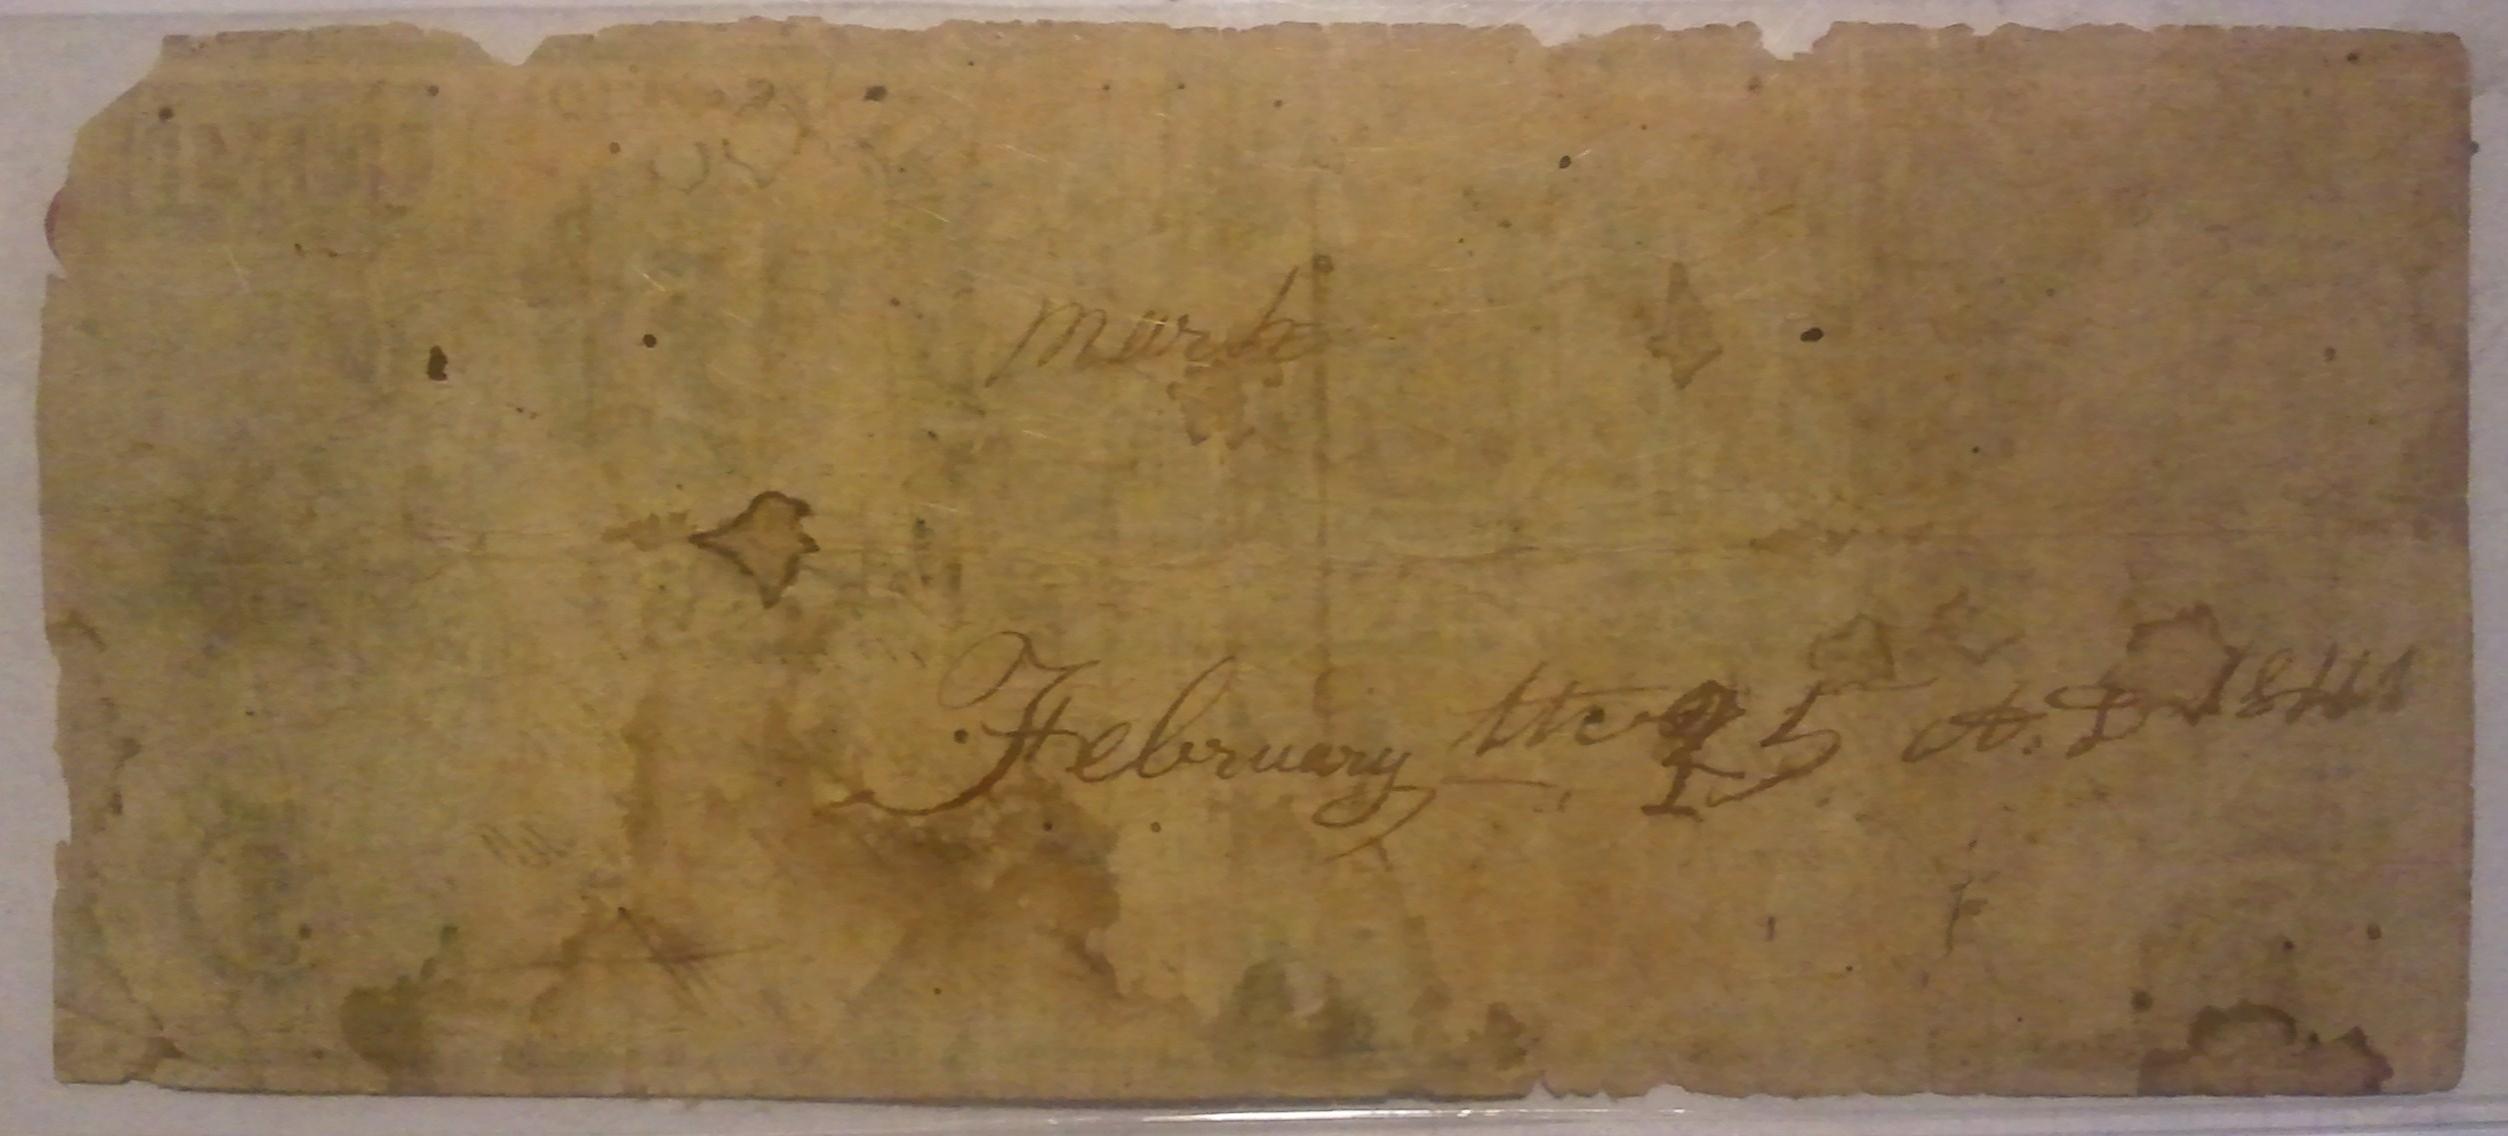 mark
February the 25 A. D 1841